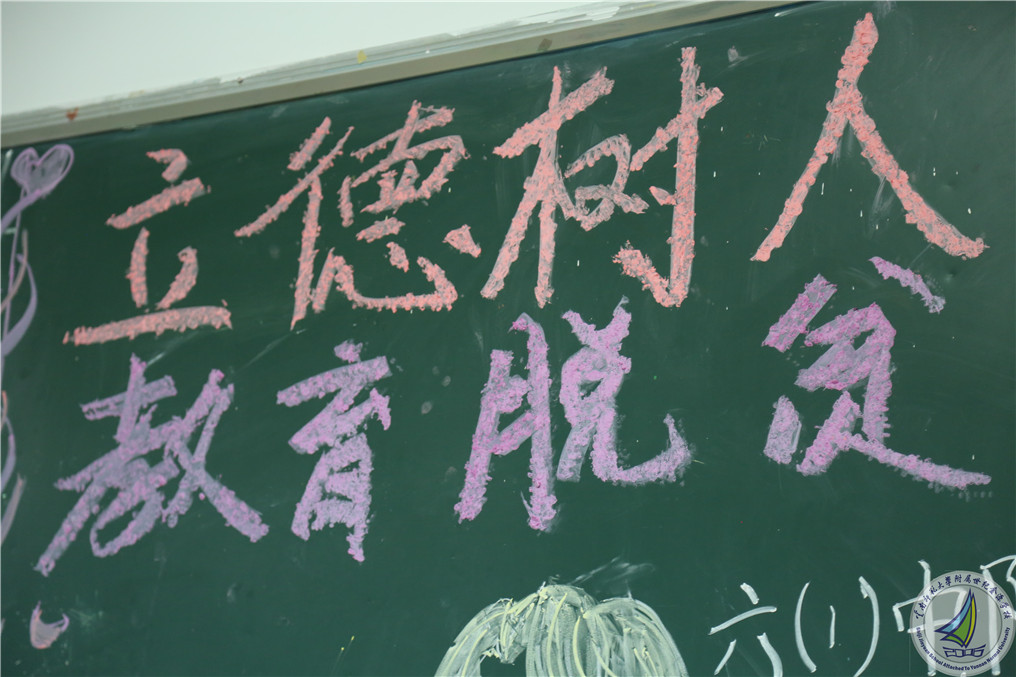 立德树人
教育脱贫
六(1)
云南师范大學附属世纪金源学校
2006
Shiji Jinyuan School Attached To Yunnan Normal University